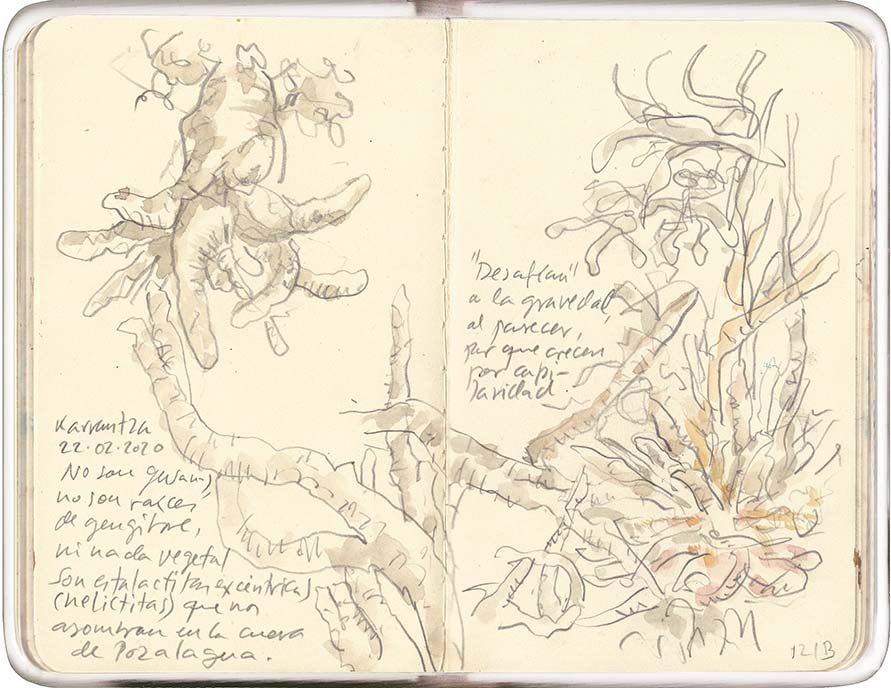 Karrantza
22·02·2020
No son gusanos,
no son raíces
de gengibre,
ni nada vegetal
son estalactitas excéntricas
(helictitas) que nos
asombran en la cueva
de Pozalagua.
"Desafían"
a la gravedad,
al parecer,
porque crecen
por capi-
laridad.
12/B